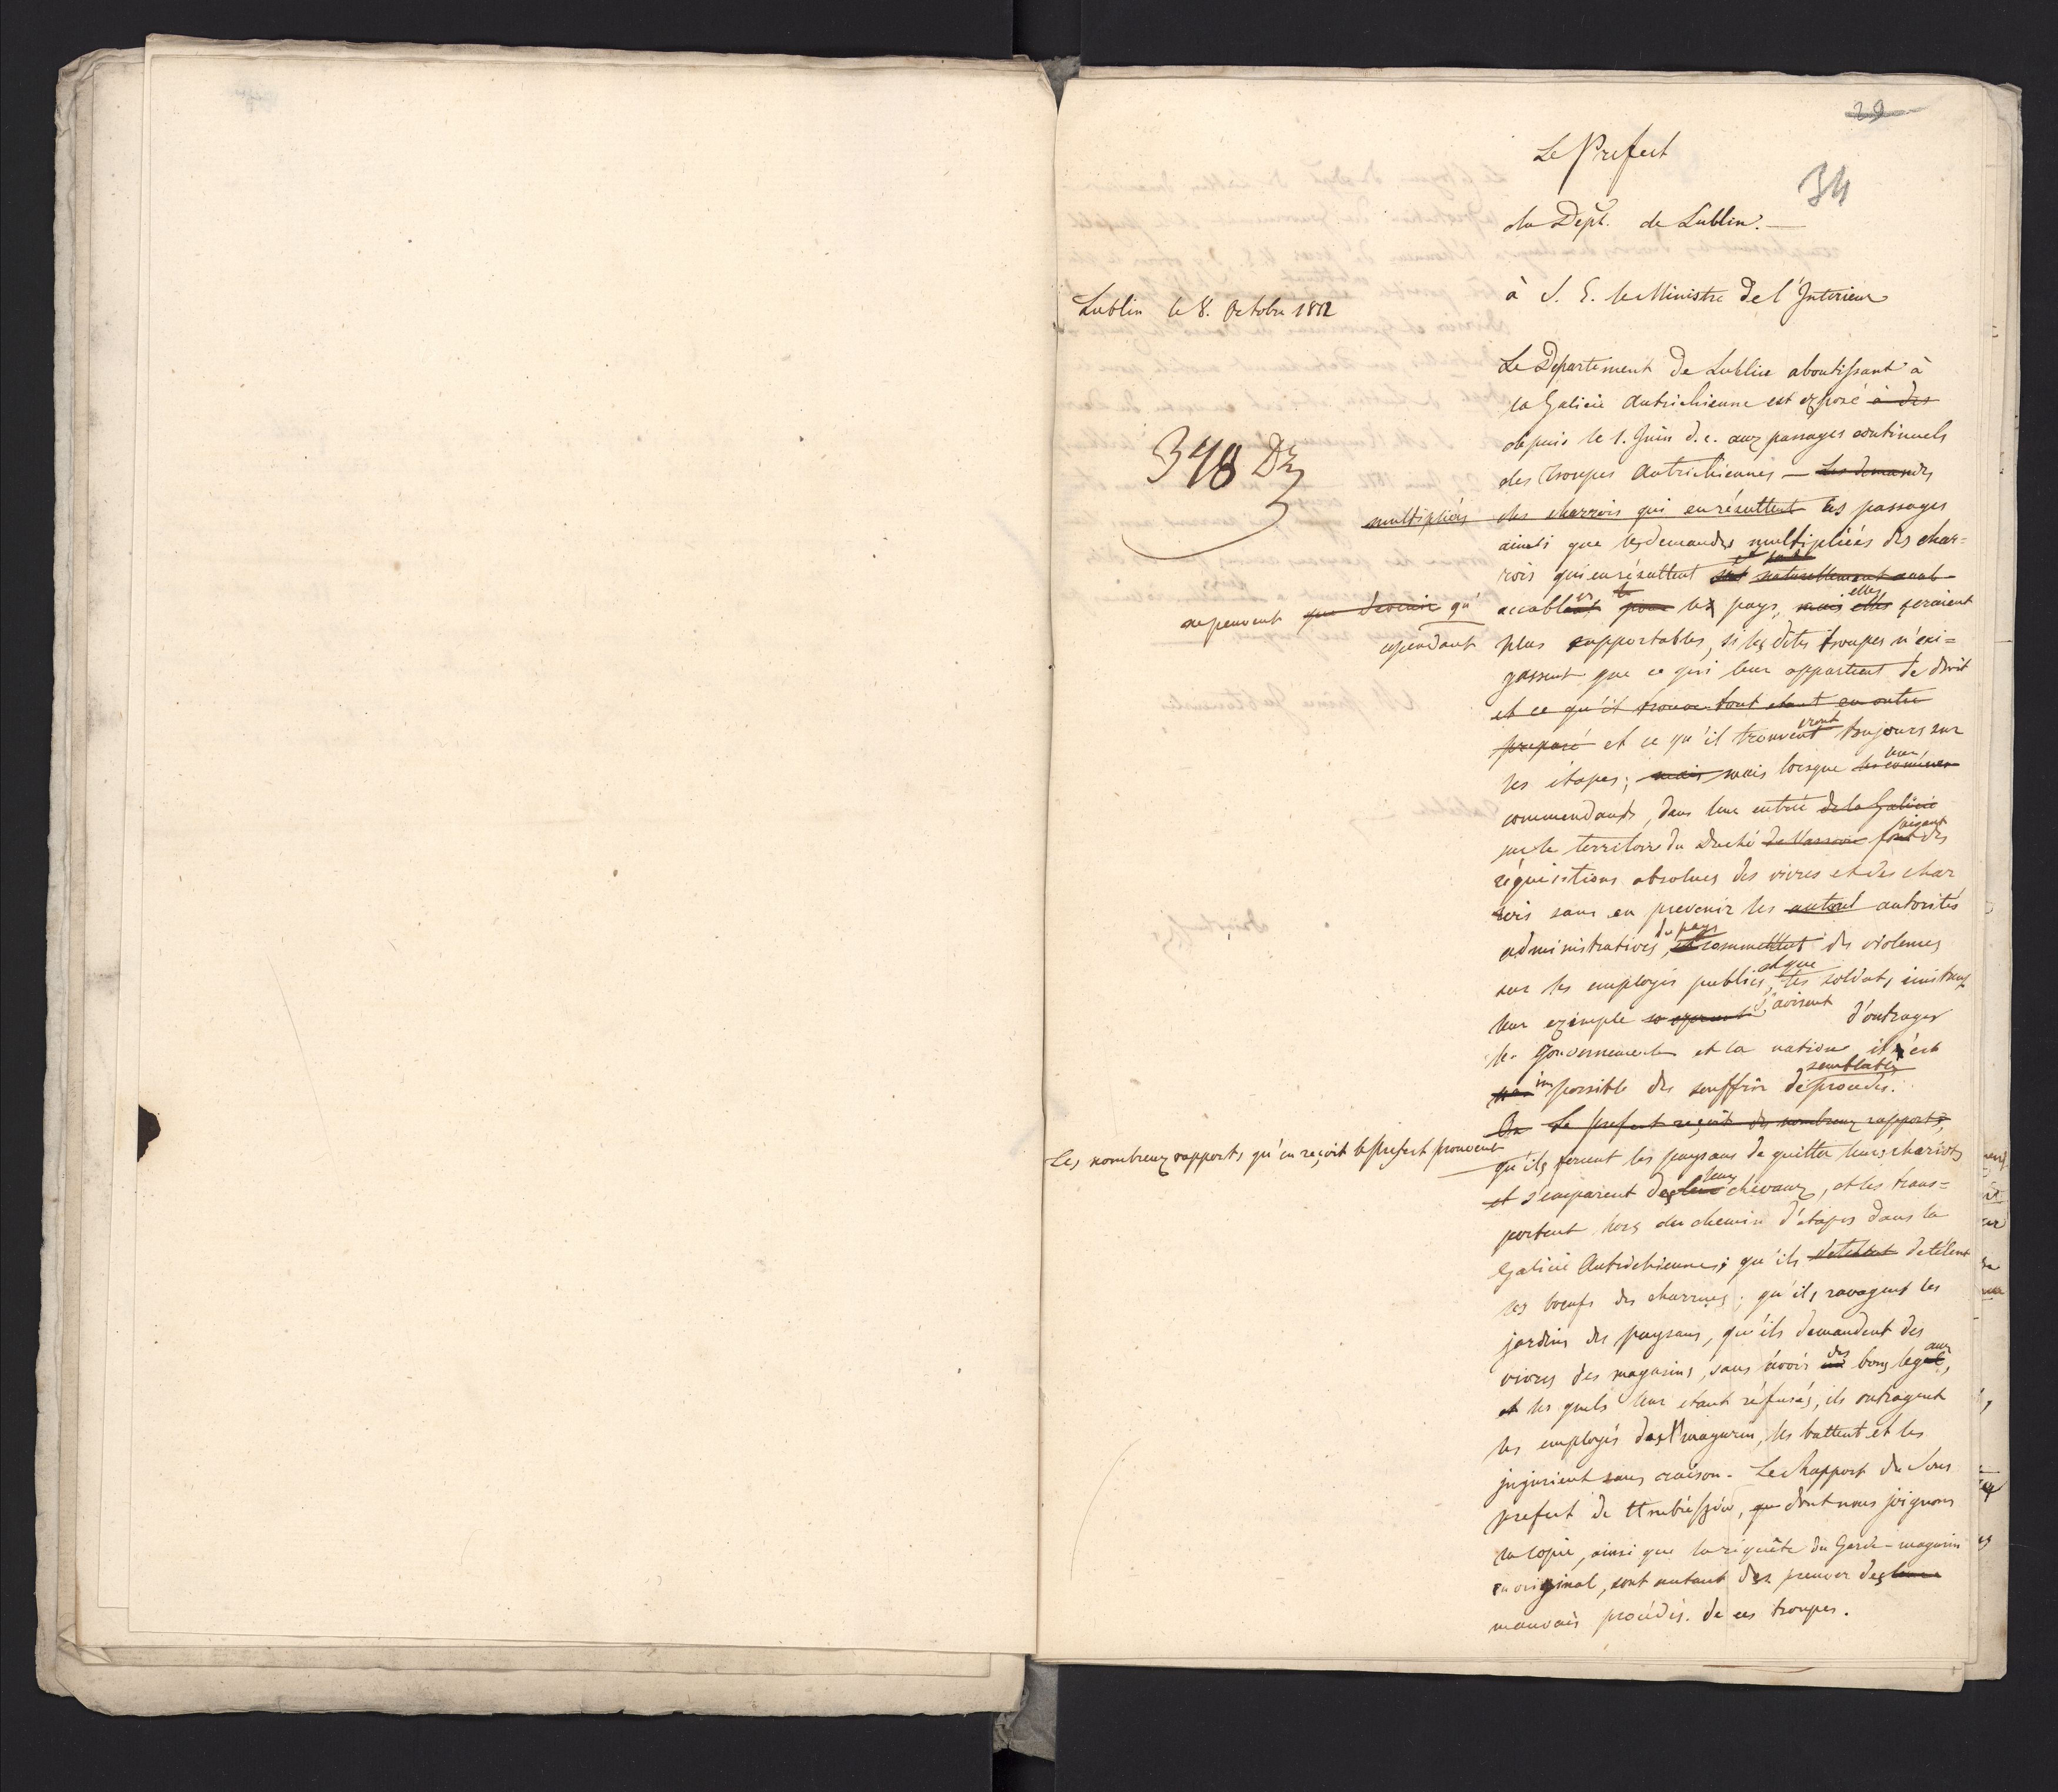 29
34
Le Prefect
du Dept. de Lublin.—
à S. E. le Ministre de l'Interieur
Lublin le 8. Octobre 1812
348 Dz
Le Departement de Lublin aboutissant à
la Galicie Autrichienne est exposé à des
depuis le 1. Juin d. c. aux passages continuels
des Troupes Autrichiennes — Les demandes
multipliées des charrois qui en résultent les passages
ainsi que les demandes multipliées des char=
rois qui en résultent naturellement
ne peuvent que devenir qu'
accabler pour le pays, mais elles seraient
cependant plus supportables, si les dites troupes n'exi=
geassent que ce qui leur appartient de droit
et ce qu'il trouve tout etant en outre
preparé et ce qu'il trouveront toujours sur
les étapes; mais mais lorsque leur
commendants, dans leur entrée de la Galicie
sur le territoire du Duché de Varsovie font faisant des
réquisitions absolues des vivres et des char
rois sans en prevenir les autorités
administratives du pays, commettent des violences
sur les employés publics, et que les soldats
leur exemple s'avisent d'outrager
le Gouvernement et la nation il est
impossible de souffrir de semblables procedés.
On Le prefect reçoit des nombreux rapports,
Les nombreux rapports qu'en reçoit le Prefect prouvent
qu'ils forcent les paysans de quitter leurs chariots
et s'emparent de leurs chevaux, et les trans=
portent hors du chemin d'etapes dans la
Galicie Autrichienne; qu'ils detelent
les boeufs des charrues; qu'ils ravagent les
jardins des paysans, qu'ils demandent des
vivres des magasins, sans avoir des bons legaux,
et les quels leur etant réfusés, ils outragent
les employés des magasin, les battent et les
injurient sans raison. Le Rapport du Sous
prefect de Hrubieszow, que dont nous joignons
la copie, ainsi que la requête du Garde-magasin
en original, sont autant des preuves des leurs
mauvais procédés de ces troupes.